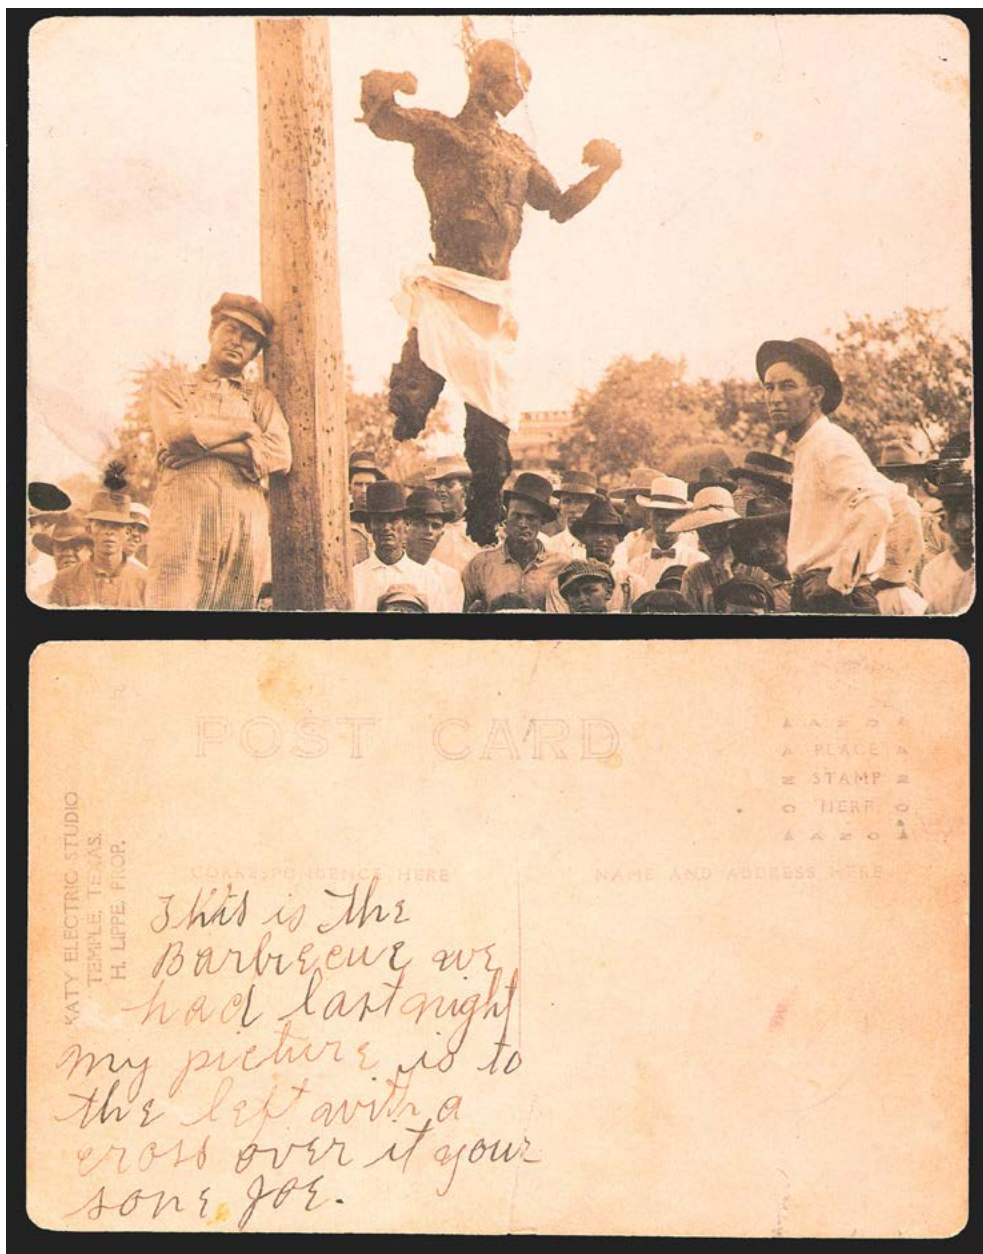 POST CARD
AZO
PLACE
STAMP
HERE
AZO
KATY ELECTRIC STUDIO
TEMPLE, TEXAS.
H. LIPPE, PROP.
CORRESPONDENCE HERE
NAME AND ADDRESS HERE
This is the
Barbecue we
had last night
my picture is to
the left with a
cross over it your
sone Joe.